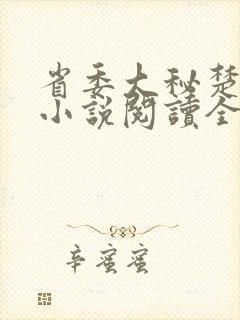 省委大秘楚
小說閱讀全
辛蜜蜜